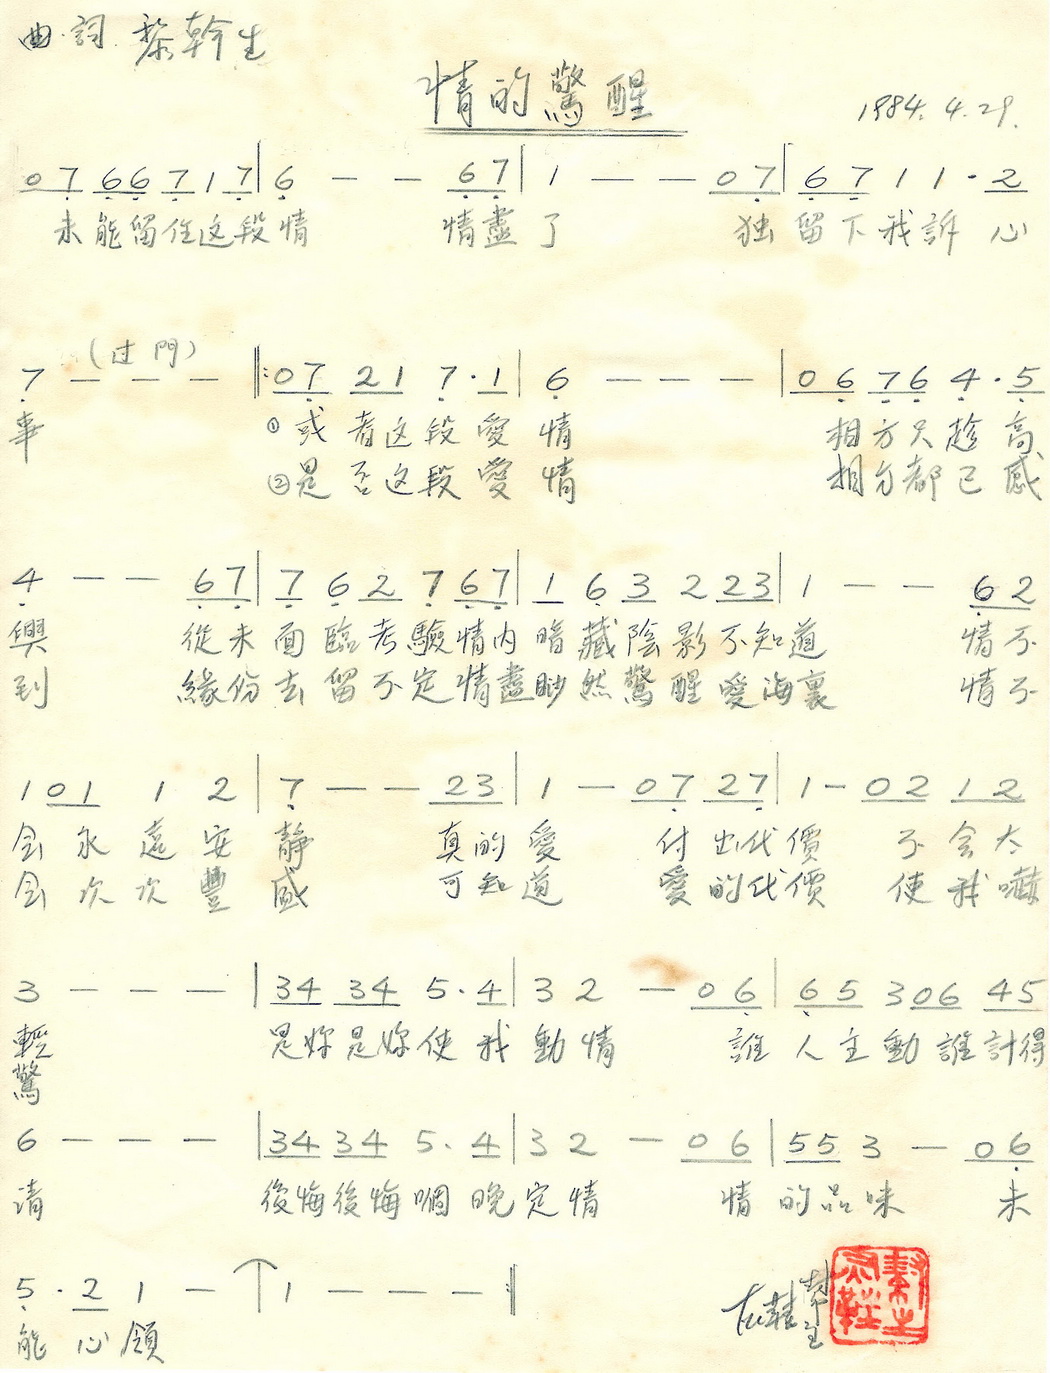 曲.詞 黎幹生
情的驚醒
1984.4.29.
0 7 6 6 7 1 7 | 6 — — 6 7 | 1 — — 0 7 | 6 7 1 1 · 2
未能留住这段情 情盡了 独留下我訴心
(过門)
7 — — — ‖: 0 7 2 1 7 · 1 | 6 — — — | 0 6 7 6 4 · 5
事 ① 或者这段愛情 相方只趁高
② 是否这段愛情 相方都已感
4 — — 6 7 | 7 6 2 7 6 7 | 1 6 3 2 2 3 | 1 — — 6 2
興 從未面臨考驗情内暗藏陰影不知道 情不
到 緣份去留不定情盡眇然驚醒愛海裏 情不
1 0 1 1 2 | 7 — — 2 3 | 1 — 0 7 2 7 | 1 — 0 2 1 2
会永遠安静 真的愛 付出代價 不会太
会次次豐盛 可知道 愛的代價 使我嚇
3 — — — | 3 4 3 4 5 · 4 | 3 2 — 0 6 | 6 5 3 0 6 4 5
輕 是妳是妳使我動情 誰人主動誰計得
驚
6 — — — | 3 4 3 4 5 · 4 | 3 2 — 0 6 | 5 5 3 — 0 6
清 後悔後悔嗰晚定情 情的品味 未
5 · 2 1 — | 1 — — — :‖
能心領